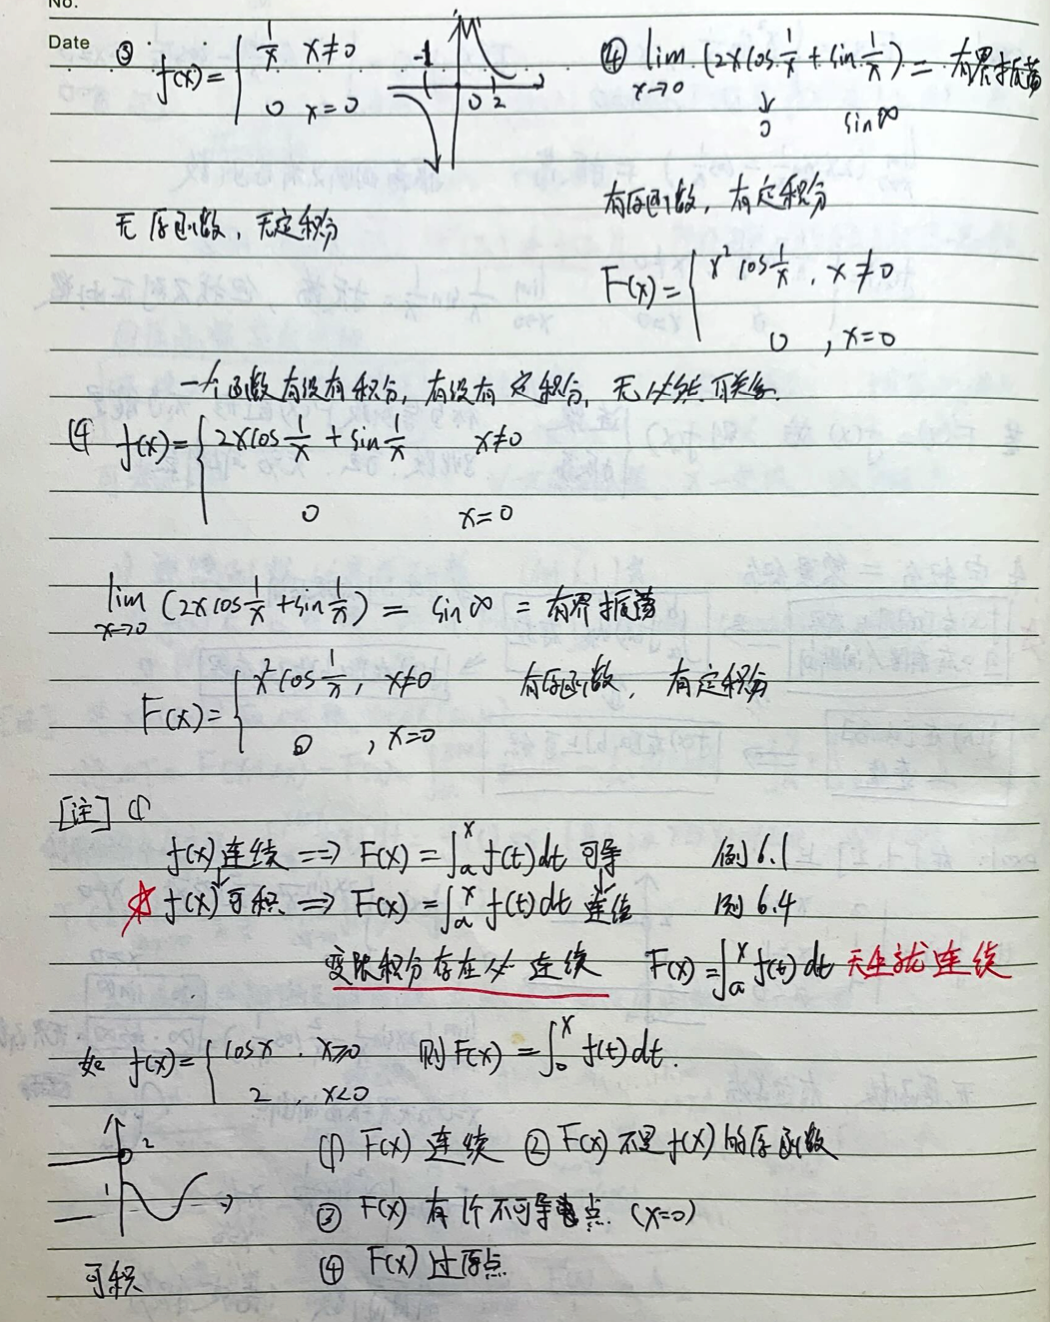 No.
Date
③ f(x)= { 1/x x≠0
0 x=0
-1 0 2
无原函数, 无定积分
④ lim x→0 (2xcos 1/x + sin 1/x) = 有界振荡
↓ 0 sin∞
有原函数, 有定积分
F(x)= { x² cos 1/x , x≠0
0 , x=0
一个函数有没有积分, 有没有定积分, 无必然联系.
④ f(x)= { 2xcos 1/x + sin 1/x x≠0
0 x=0
lim x→0 (2xcos 1/x + sin 1/x) = sin∞ = 有界振荡
F(x)= { x²cos 1/x , x≠0
0 , x=0
有原函数, 有定积分
[注] ①
f(x)连续 ⇒ F(x)=∫ₐˣ f(t)dt 可导 例6.1
☆ f(x)可积 ⇒ F(x)=∫ₐˣ f(t)dt 连续 例6.4
变限积分存在必连续 F(x)=∫ₐˣ f(t)dt 天生就连续
如 f(x)= { cosx , x≥0
2 , x<0
则F(x)=∫₀ˣ f(t)dt.
2
1
① F(x)连续 ② F(x)不是f(x)的原函数
③ F(x)有1个不可导点. (x=0)
④ F(x)过原点.
可积